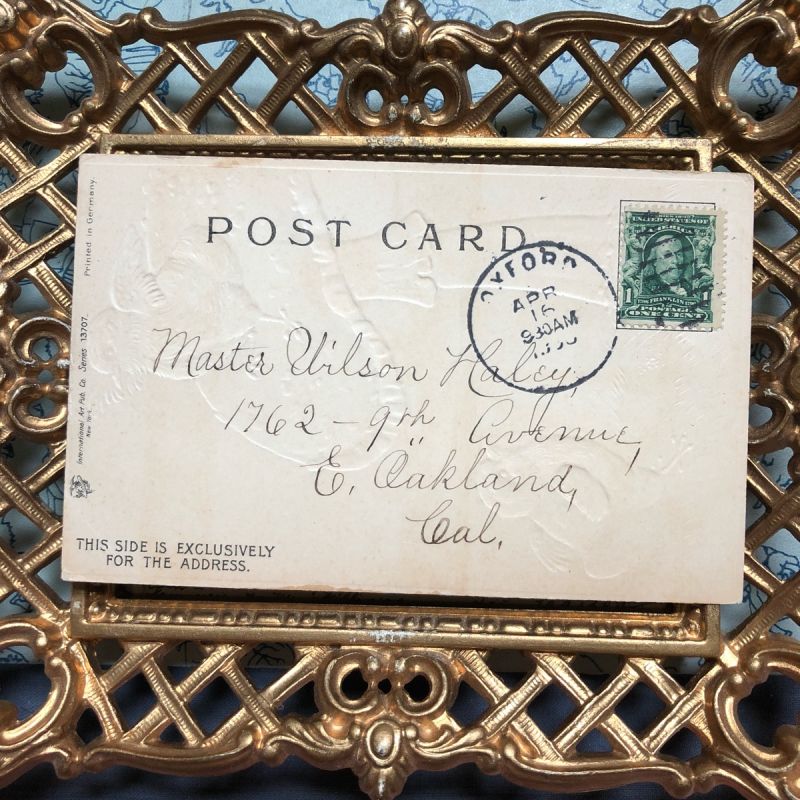 POST CARD
Printed in Germany.
International Art Pub. Co. Series 13707.
New York
UNITED STATES OF
AMERICA
1 FRANKLIN
POSTAGE
ONE CENT
OXFORD
APR
16
930AM
Master Wilson Haley,
1762 - 9th Avenue,
E. Oakland,
Cal.
THIS SIDE IS EXCLUSIVELY
FOR THE ADDRESS.